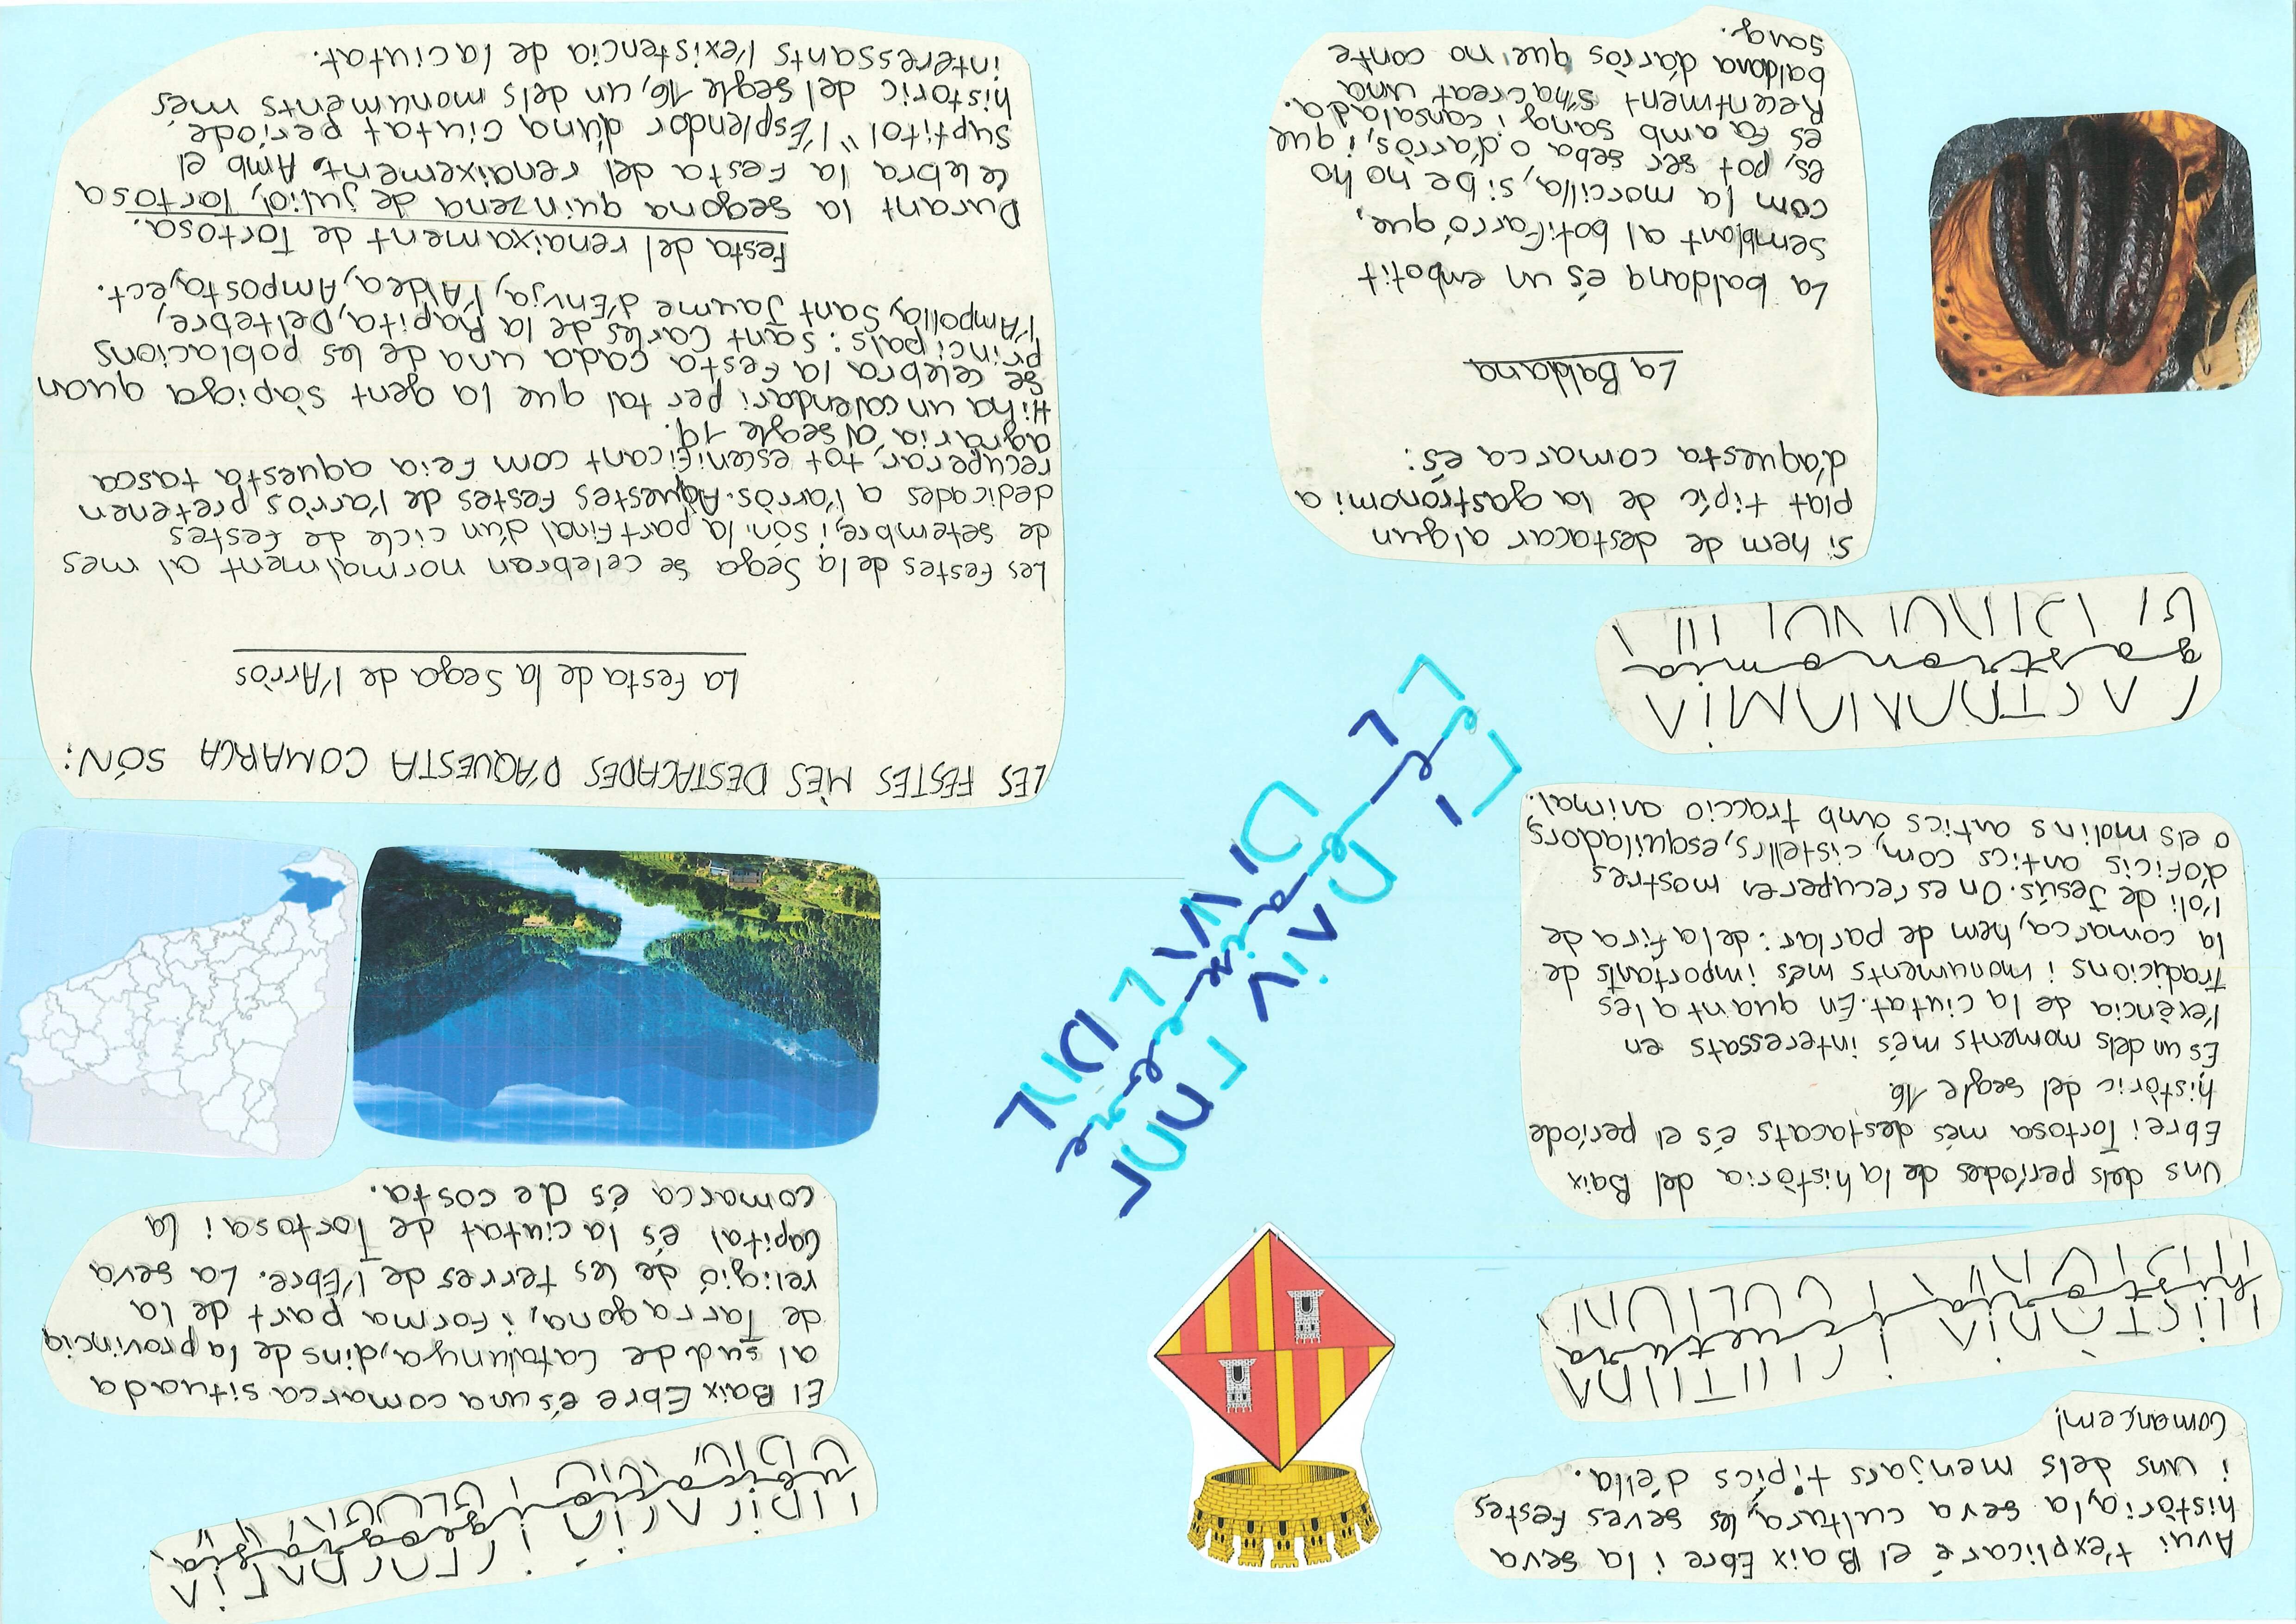 Avui t'explicaré el Baix Ebre i la seva
història, la seva cultura, les seves festes
i uns dels menjars típics d'ella.
Comançem!
HISTÒRIA i CULTURA
història i cultura
Uns dels períodes de la història del Baix
Ebre i Tortosa més destacats és el període
històric del segle 16.
Es un dels moments més interessats en
l'exència de la ciutat. En quant a les
tradicions i monuments més importants de
la comarca, hem de parlar: de la fira de
l'oli de Jesús. On es recuperen mostres
d'oficis antics com, cistells, esquiladors,
o els molins antics amb tracció animal.
GASTRONOMIA
gastronomia
Si hem de destacar algun
plat típic de la gastronomia
d'aquesta comarca és:
La Baldana
La baldana és un enbotit
semblant al botifarró que,
com la morcilla, si be no ho
és, pot ser seba o d'arròs, i que
es fa amb sang i cansalada.
Recentment s'ha creat una
baldana d'arròs que no conte
sang.
UBICACIÓ i GEOGRAFIA
El Baix Ebre és una comarca situada
al sud de Catalunya, dins de la provincia
de Tarragona, i forma part de la
religió de les terres de l'Ebre. La seva
Capital és la ciutat de Tortosa i la
comarca és de costa.
LES FESTES MÈS DESTACADES D'AQUESTA COMARCA SÓN:
La festa de la Sega de l'Arròs
Les festes de la Sega se celebran normalment al mes
de setembre, i són la part final d'un cicle de festes
dedicades a l'arròs. Aquestes festes de l'arròs pretenen
recuperar, tot escenificant com feia aquesta tasca
agrària al segle 19.
Hi ha un calendari per tal que la gent sàpiga quan
se celebra la festa cada una de les poblacions
principals: Sant Carles de la Ràpita, Deltebre,
l'Ampolla, Sant Jaume d'Enveja, l'Aldea, Amposta, ect.
Festa del renaixament de Tortosa.
Durant la segona quinzena de juliol, Tortosa
celebra la festa del renaixement. Amb el
suptitol "l'Esplendor d'una Ciutat període
historic del segle 16, un dels monuments mes
interessants l'existencia de la ciutat.